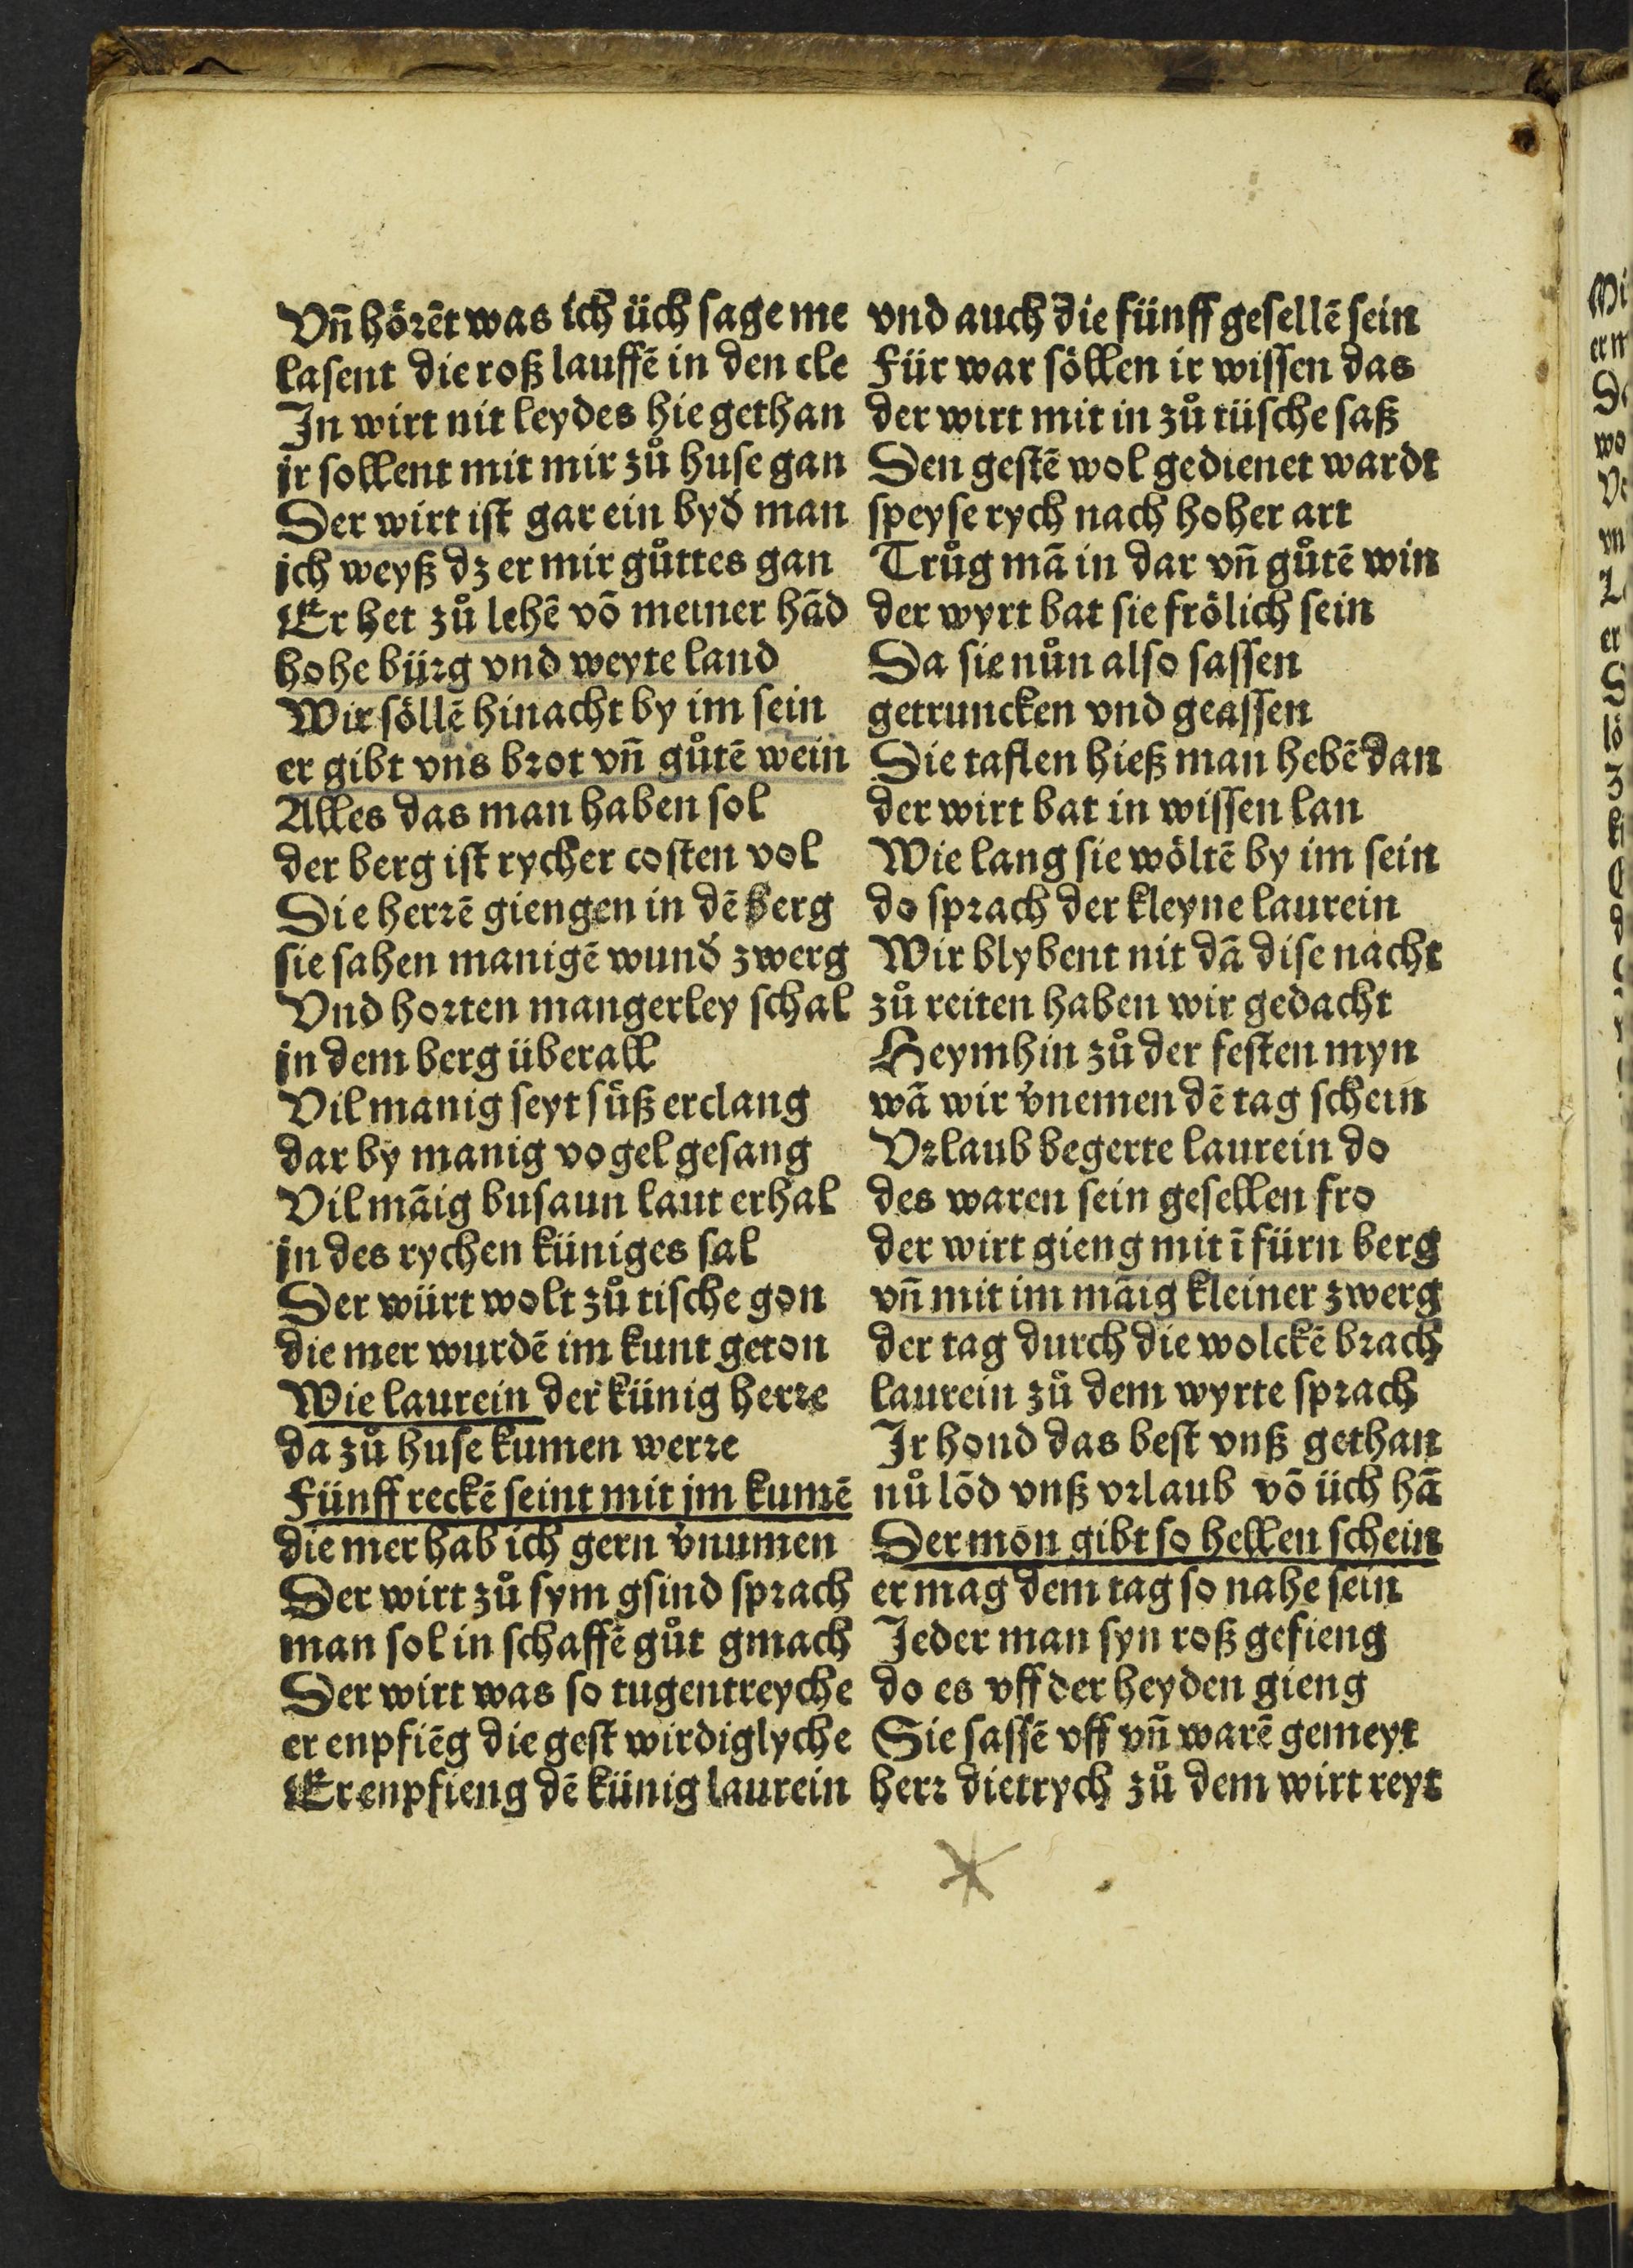 Vñ hörēt was ich üch sage me
lasent die roß lauffē in den cle
In wirt nit leydes hie gethan
ir sollent mit mir zů huse gan
Der wirt ist gar ein byd̕ man
ich weyß dz er mir gůttes gan
Er het zů lehē vō meiner hād
hohe bürg vnd weyte land
Wir söllē hinacht by im sein
er gibt vns brot vñ gůtē wein
Alles das man haben sol
der berg ist rycher costen vol
Die herrē giengen in dē berg
sie sahen manigē wund̕ zwerg
Vnd horten mangerley schal
in dem berg überall
Vil manig seyt süß erclang
dar by manig vogel gesang
Vil māig busaun laut erhal
in des rychen küniges sal
Der würt wolt zů tische gon
die mer wurdē im kunt geton
Wie laurein der künig herre
da zů huse kumen werre
Fünff reckē seint mit jm kumē
die mer hab ich gern v̕numen
Der wirt zů sym gsind sprach
man sol in schaffē gůt gmach
Der wirt was so tugentreyche
er enpfiēg die gest wirdiglyche
Er enpfieng dē künig laurein
vnd auch die fünff gesellē sein
Für war söllen ir wissen das
der wirt mit in zů tüsche saß
Den gestē wol gedienet wardt
speyse rych nach hoher art
Trůg mā in dar vñ gůtē win
der wyrt bat sie frölich sein
Da sie nůn also sassen
getruncken vnd geassen
Die taflen hieß man hebē dan
der wirt bat in wissen lan
Wie lang sie wöltē by im sein
do sprach der kleyne laurein
Wir blybent nit dā dise nacht
zů reiten haben wir gedacht
Heymhin zů der festen myn
wā wir v̕nemen dē tag schein
Vrlaub begerte laurein do
des waren sein gesellen fro
der wirt gieng mit ī fürn berg
vñ mit im māig kleiner zwerg
der tag durch die wolckē brach
laurein zů dem wyrte sprach
Ir hond das best vnß gethan
nů lōd vnß vrlaub vō üch hā
Der mon gibt so hellen schein
er mag dem tag so nahe sein
Jeder man syn roß gefieng
do es vff der heyden gieng
Sie sassē vff vñ warē gemeyt
herr dietrych zů dem wirt reyt